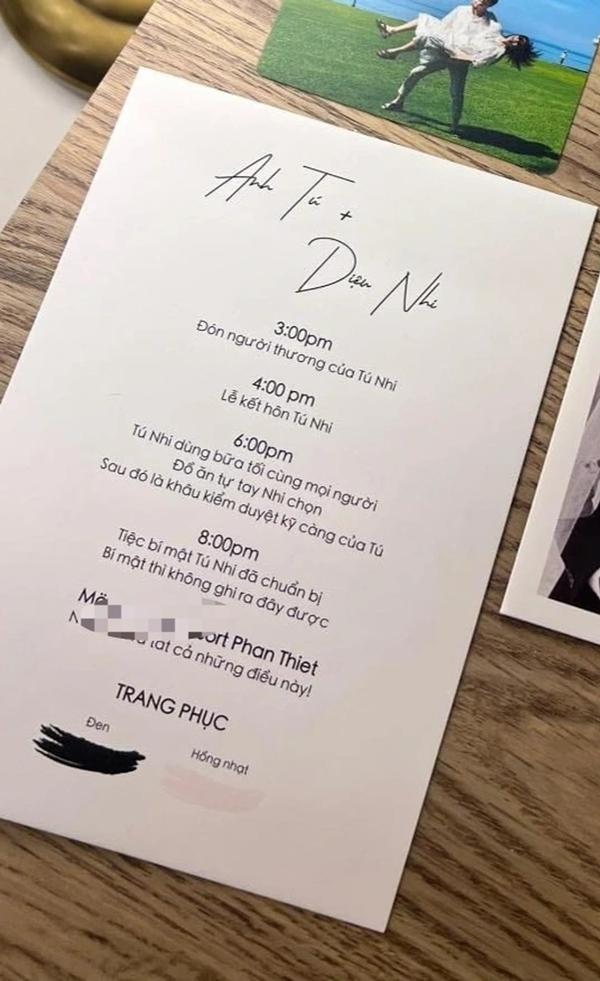 Anh Tú +
Diệu Nhi
3:00pm
Đón người thương của Tú Nhi
4:00 pm
Lễ kết hôn Tú Nhi
6:00pm
Tú Nhi dùng bữa tối cùng mọi người
Đồ ăn tự tay Nhi chọn
Sau đó là khâu kiểm duyệt kỹ càng của Tú
8:00pm
Tiệc bí mật Tú Nhi đã chuẩn bị
Bí mật thì không ghi ra đây được
Phan Thiet
tất cả những điều này!
TRANG PHỤC
Đen
Hồng nhạt